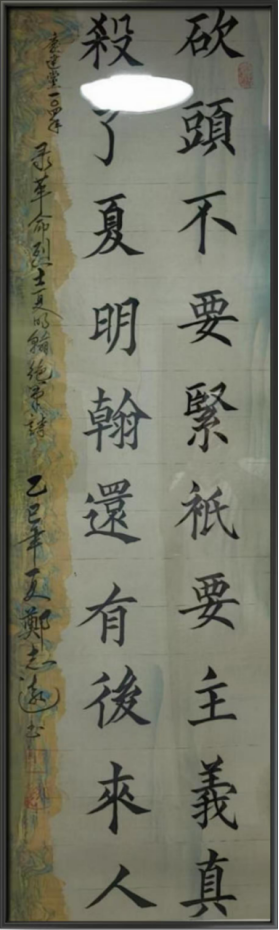 砍頭不要緊衹要主義真
殺了夏明翰還有後來人
录革命烈士夏明翰绝命詩
乙巳年夏鄭志遠书